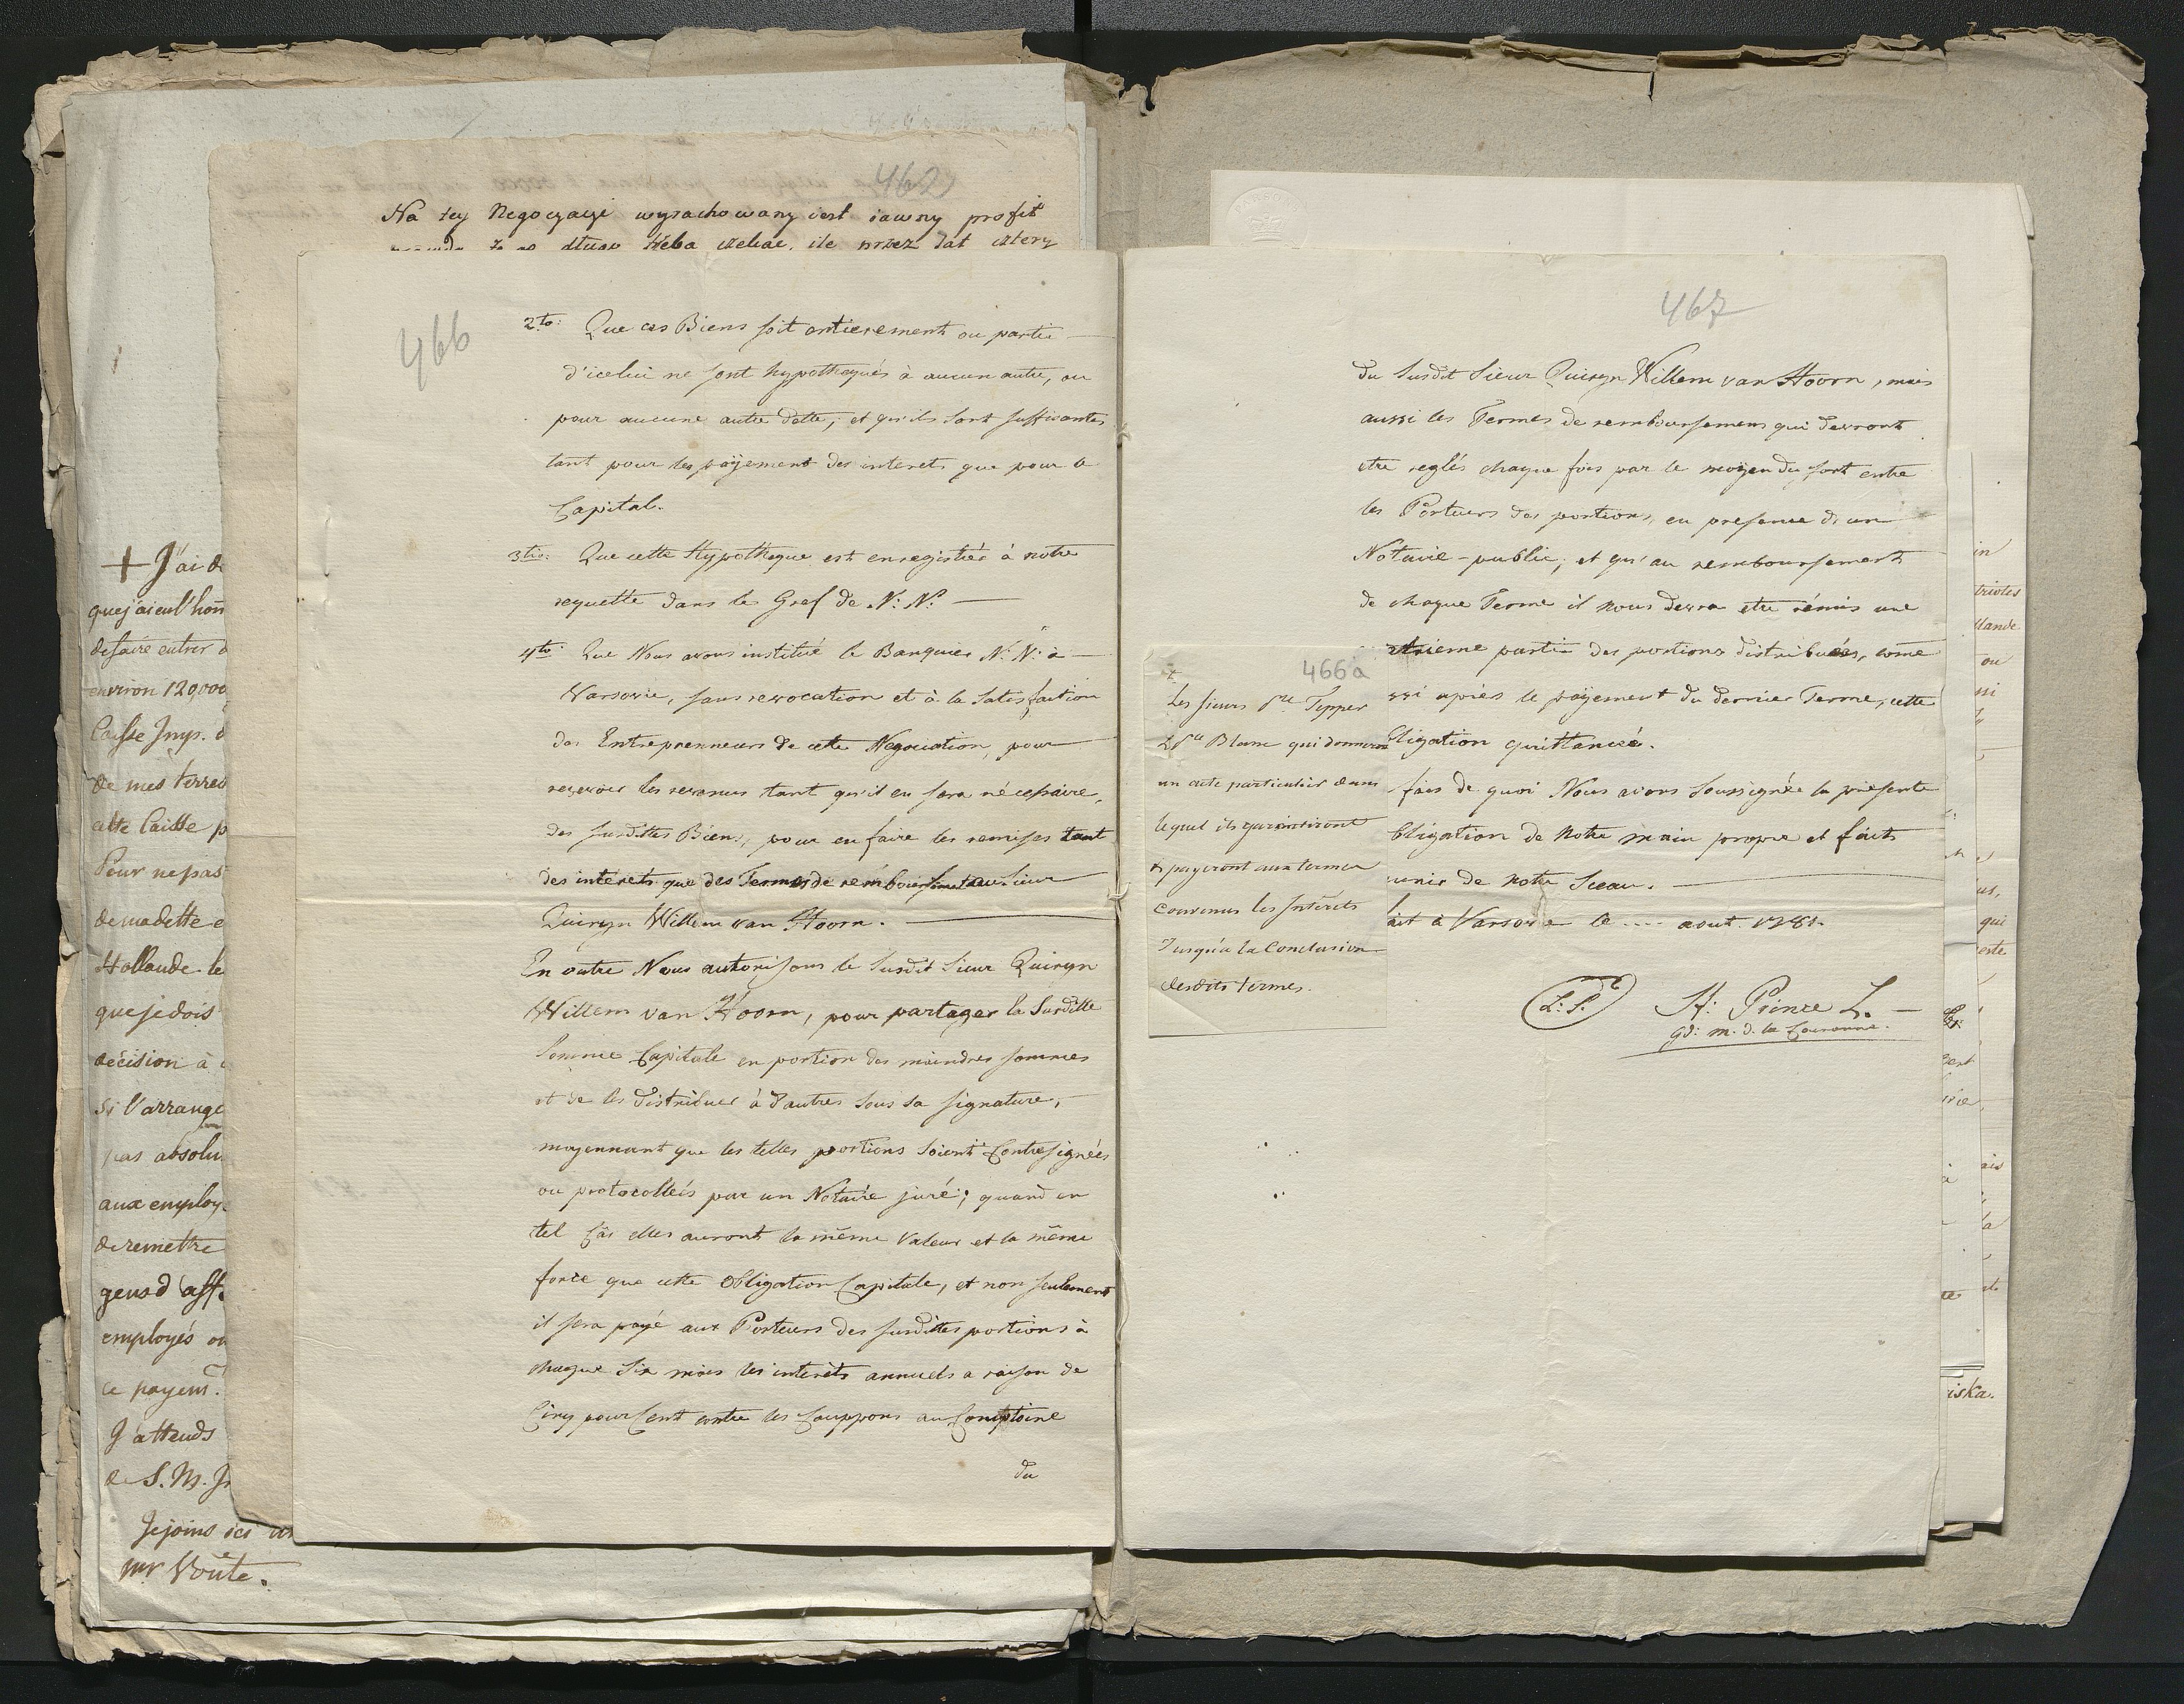 462
Na tey Negocyacyi wyrachowany iest iawny profit
dlugo trzeba czekac, ile przez lat cztery
+ J'ai d
que j'ai eu l'hon
de faire entrer d
environ 120,000
Caisse Imp. d
de mes terres
cette Caisse p
Pour ne pas
de ma dette e
Hollande le
que je dois
décision à
si l'arrange
pas absolu
aux employ
de remettre
gens d'aff.
employés ou
ce payem.t
J'attends
de S. M. J
Je joins ici un
mr Voûte.
466
2.to: Que ces Biens soit entierement ou partie —
d'icelui ne sont hypothequés à aucun autre, ou
pour aucune autre dette; et qu'ils sont suffisantes
tant pour les payement des interets que pour le
Capital.
3.tio: Que cette Hypotheque est enregistrée à notre
requette dans le Gref de N: N: —
4.to: Que Nous avons institué le Banquier N: N: à —
Varsovie, sans revocation et à la Satisfaction
des Entreprenneurs de cette Negociation, pour
recevoir les revenus tant qu'il en sera nécessaire,
des susdittes Biens, pour en faire les remises tant
des interets que des Termes de remboursement au Sieur
Quiryn Willem van Hoorn. —
En outre Nous autorisons le susdit Sieur Quiryn
Willem van Hoorn, pour partager la Susditte
Somme Capitale en portion des moindres sommes
et de les distribuer à d'autres sous sa signature, —
moyennant que les telles portions soient Contresignées
ou protocollées par un Notaire juré; quand en
tel Cas elles auront la même Valeur et la même
force que cette Obligation Capitale, et non seulement
il sera payé aux Porteurs des susdittes portions à
chaque Six mois les interêts annuels a raison de
Cinq pour Cent contre les Couppons au Comptoire
du
467
du Susdit Sieur Quiryn Willem van Hoorn, mais
aussi les Termes de remboursemens qui devront
etre reglés chaque fois par le moyen du sort entre
les Porteurs des portions, en presence d'un
Notaire-public; et qu'au remboursement
de chaque Terme il nous devra etre rémis une
trieme partie des portions distribuées, come
ssi après le payement du dernier Terme, cette
bligation quittancée.
fois de quoi Nous avons soussignée la présente
bligation de Notre main propre et faits
unir de Notre Sceau. —
ait à Varsovie le .... aout. 1781.
L: S. H: Prince L. —
gd: m. d. la Couronne.
466a
+
Les Sieurs Tepper
& Blanc qui donneron
un acte particulier dans
lequel ils garantiront
& payeront aux termes
convenus les Intérêts
Jusqu'à la Conclusion
desdits termes.
in
llande
ou
us,
qui
este
iska.